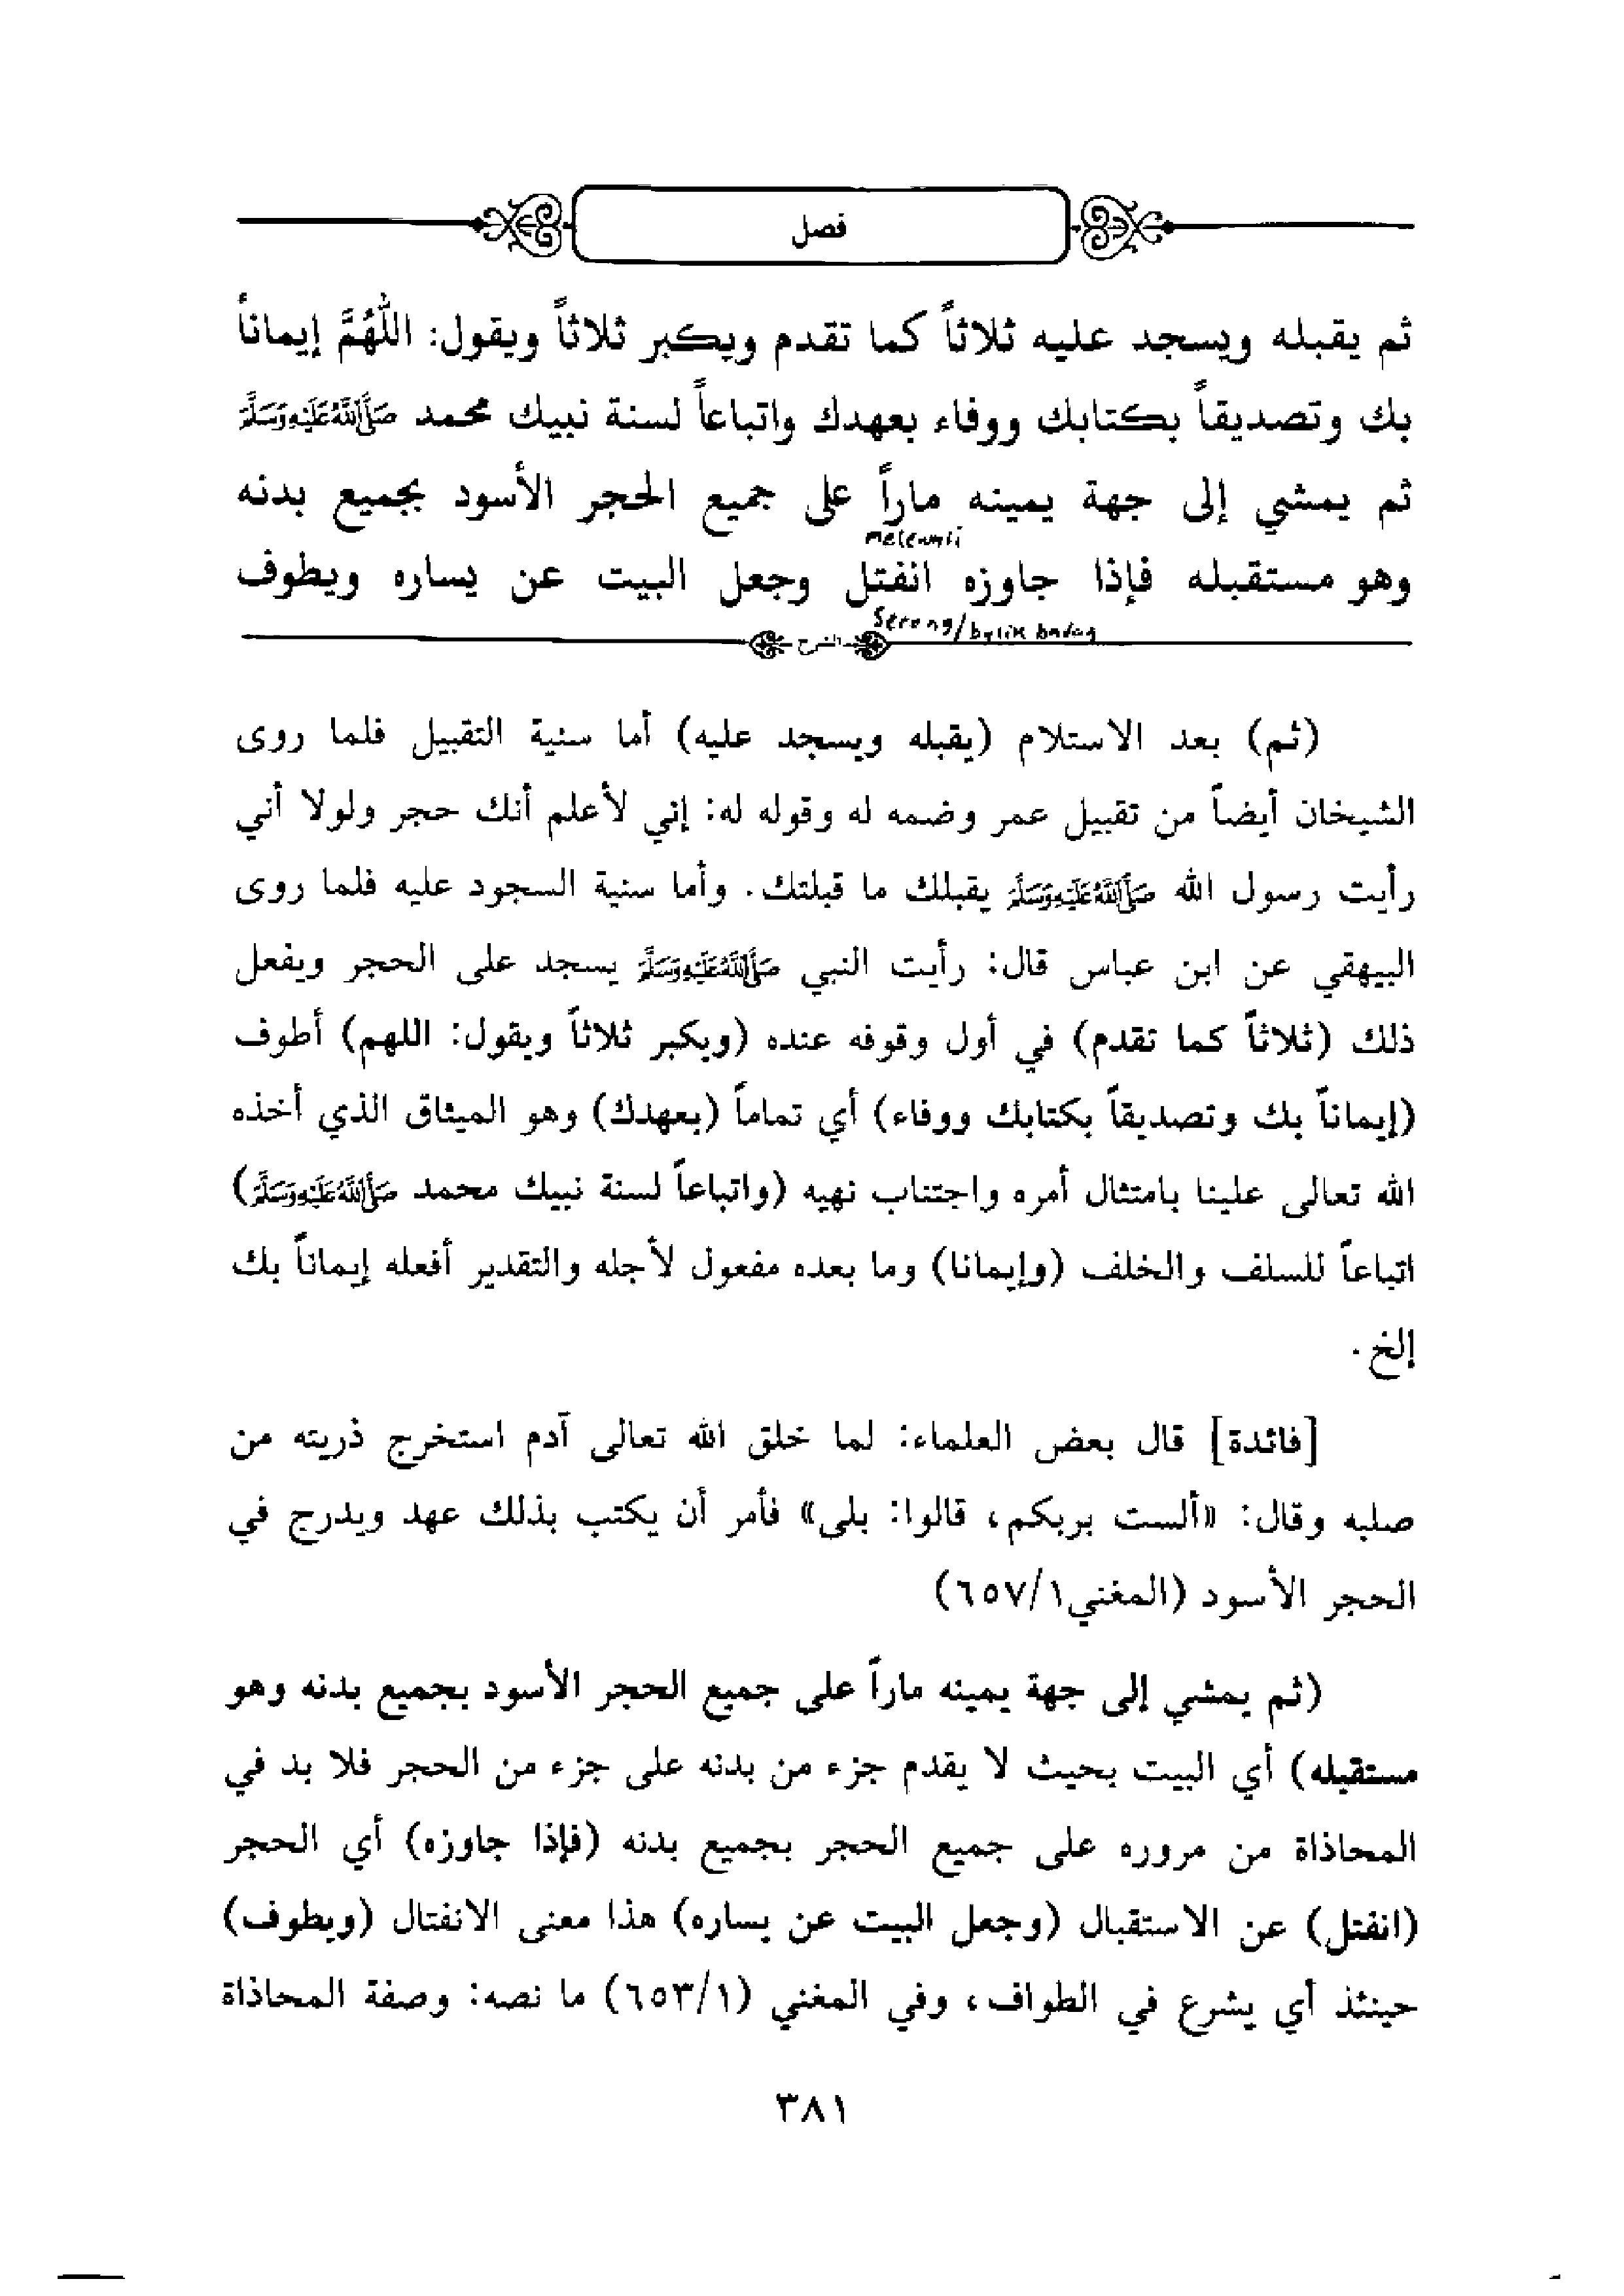 فصل
ثم يقبله ويسجد عليه ثلاثاً كما تقدم ويكبر ثلاثاً ويقول: اللَّهُمَّ إيماناً
بك وتصديقاً بكتابك ووفاء بعهدك واتباعاً لسنة نبيك محمد صَلَّى اللَّهُ عَلَيْهِ وَسَلَّمَ
ثم يمشي إلى جهة يمينه ماراً على جميع الحجر الأسود بجميع بدنه
melewati
وهو مستقبله فإذا جاوزه انفتل وجعل البيت عن يساره ويطوف
Serong/balik badag
الشرح
(ثم) بعد الاستلام (يقبله ويسجد عليه) أما سنية التقبيل فلما روى
الشيخان أيضاً من تقبيل عمر وضمه له وقوله له: إني لأعلم أنك حجر ولولا أني
رأيت رسول الله صَلَّى اللَّهُ عَلَيْهِ وَسَلَّمَ يقبلك ما قبلتك. وأما سنية السجود عليه فلما روى
البيهقي عن ابن عباس قال: رأيت النبي صَلَّى اللَّهُ عَلَيْهِ وَسَلَّمَ يسجد على الحجر ويفعل
ذلك (ثلاثاً كما تقدم) في أول وقوفه عنده (ويكبر ثلاثاً ويقول: اللهم) أطوف
(إيماناً بك وتصديقاً بكتابك ووفاء) أي تماماً (بعهدك) وهو الميثاق الذي أخذه
الله تعالى علينا بامتثال أمره واجتناب نهيه (واتباعاً لسنة نبيك محمد صَلَّى اللَّهُ عَلَيْهِ وَسَلَّمَ)
اتباعاً للسلف والخلف (وإيمانا) وما بعده مفعول لأجله والتقدير أفعله إيماناً بك
إلخ.
[فائدة] قال بعض العلماء: لما خلق الله تعالى آدم استخرج ذريته من
صلبه وقال: «ألست بربكم، قالوا: بلى» فأمر أن يكتب بذلك عهد ويدرج في
الحجر الأسود (المغني١/٦٥٧)
(ثم يمشي إلى جهة يمينه ماراً على جميع الحجر الأسود بجميع بدنه وهو
مستقبله) أي البيت بحيث لا يقدم جزء من بدنه على جزء من الحجر فلا بد في
المحاذاة من مروره على جميع الحجر بجميع بدنه (فإذا جاوزه) أي الحجر
(انفتل) عن الاستقبال (وجعل البيت عن يساره) هذا معنى الانفتال (ويطوف)
حينئذ أي يشرع في الطواف، وفي المغني (١/٦٥٣) ما نصه: وصفة المحاذاة
٣٨١